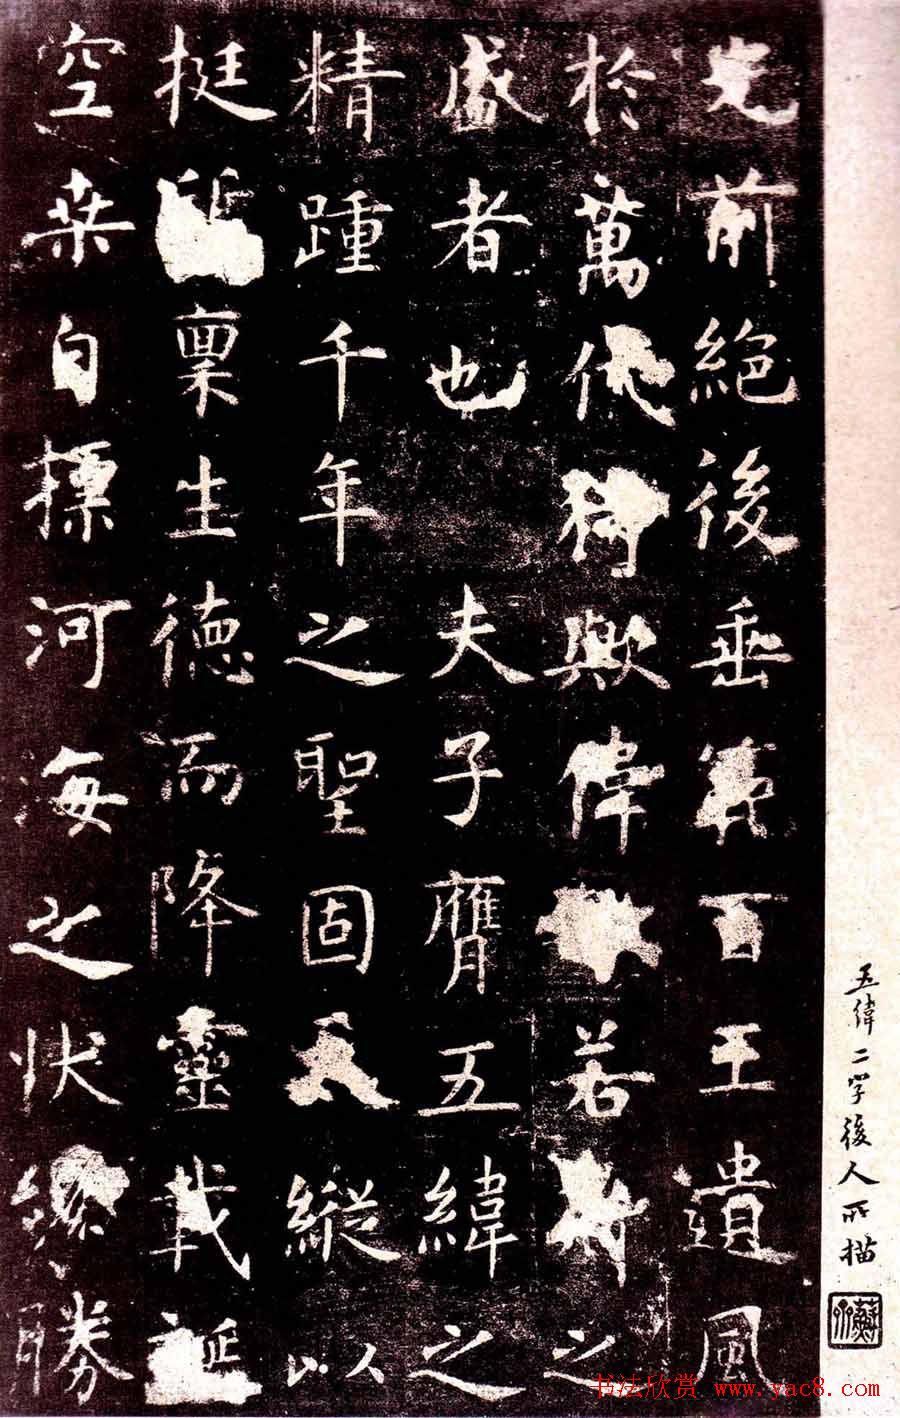 五緯二字後人所描
光前絕後垂百王遺風
於萬代猗歟偉若斯之
盛者也 夫子膺五緯之
精踵千年之聖固天縱以
挺稟生德而降靈載誕
空桑自標河海之狀纔勝
书法欣赏 www.yac8.com